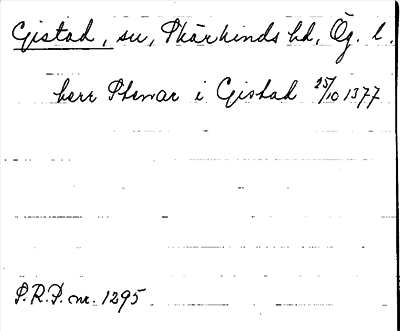 Gistad, sn, Skärkinds hd, Ög. l.
herr Stenar i Gistad 25/10 1377
S.R.P. nr. 1295.